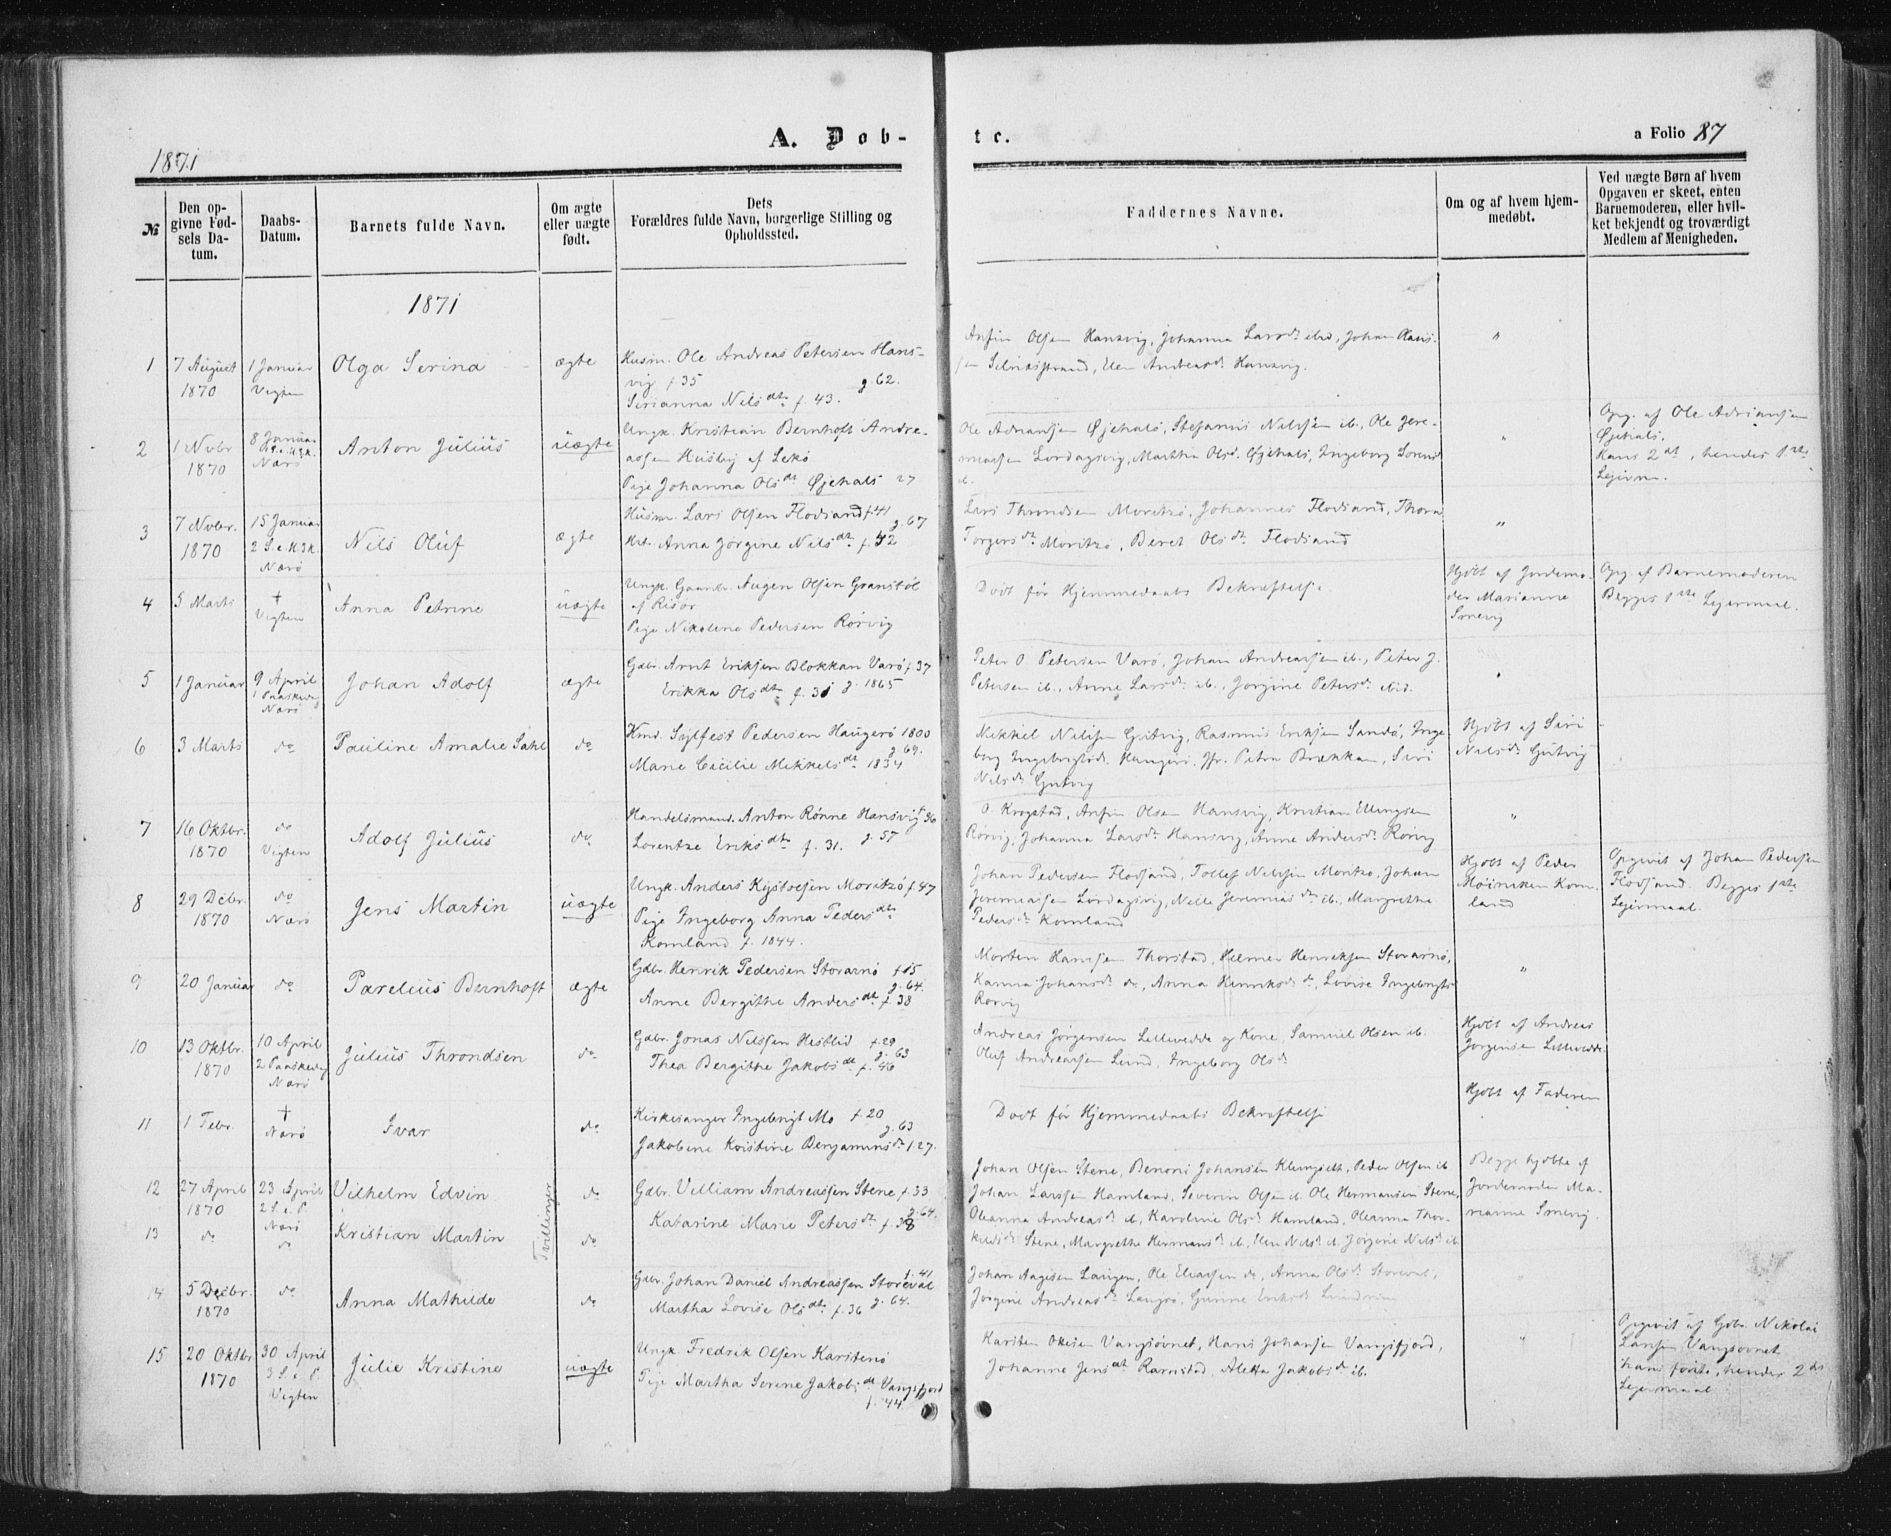 1871
A. Døb-
te.
a Folio 87
№
Den op-
givne Fød-
sels Da-
tum.
Daabs-
Datum.
Barnets fulde Navn.
Om ægte
eller uægte
født.
Dets
Forældres fulde Navn, borgerlige Stilling og
Opholdssted.
Faddernes Navne.
Om og af hvem hjem-
medøbt.
Ved uægte Børn af hvem
Opgaven er skeet, enten
Barnemoderen, eller hvil-
ket bekjendt og troværdigt
Medlem af Menigheden.
1871
1
7 August
1870
1 Januar
Vigten
Olga Serina
ægte
Husm. Ole Andreas Petersen Hans-
vig f. 35
g. 62.
Serianna Nilsdtr f. 43.
Anfin Olsen Hansvig, Johanna Larsdr ibid, Johan Hans-
sen
Andreasdr Hansvig.
"
2
1 Novbr
1870
8 Januar
Nærö
Anton Julius
uægte
Ungk. Kristian Bernhoft Andre-
assen Husby af Lekö
Pige Johanna Olsdt Øjehals 27
Ole Adriansen Øjehals, Stefanus Nilssen ib., Ole Jere-
miassen Lördagsvig, Martha Olsd. Øjehals, Ingeborg Sorensd
ib.
"
Opg. af Ole Adriansen
Øjehals.
Hans 2det, hendes 1ste
Lejerm.
3
7 Novbr.
1870
15 Januar
2 S. e. H3K.
Nærö
Nils Oluf
ægte
Husm. Lars Olsen Flodsand f. 41
g. 67
Anna Jörgine Nilsdtr f. 42
Lars Throndsen Moritzö, Johannes Flodsand, Thora
Torgersdtr Moritzö, Beret Olsdtr Flodsand
"
4
5 Marts
†
Vigten
Anna Petrine
uægte
Ungk. Gaardbr. Augen Olsen Granstöl
af Risör
Pige Nikoline Pedersen Rörvig
Dødt før Hjemmedaabs Bekræftelse.
Hjdöbt af Jordemo-
der Marianne
Smevig
Opg. af Barnemoderen
Begges 1ste Lejermaal.
5
1 Januar
9 April
1 Paaskedag
Nærö
Johan Adolf
ægte
Gdbr. Arnt Eriksen Blokkan Varö f. 37
Erikka Olsdtr f. 31 g. 1865
Peter O. Petersen Varö, Johan Andreassen ib., Peter J.
Petersen ib., Anne Larsdr ib., Jorgine Petersdr ibid.
"
6
3 Marts
do
Pauline Amalie Dahl
do
Sylfest Pedersen Haugerö 1800
g. 69.
Marie Cecilie Mikkelsdt 1834
Mikkel Nilsen Gutvig, Rasmus Eriksen Sandö, Inge-
borg Ingebrigtsdr. Haugerö, Jfr. Petra Brækkan, Siri
Nilsdr Gutvig
Hjdöbt af Siri
Nilsdr Gutvig
7
16 Oktbr.
1870
do
Vigten
Adolf Julius
do
Handelsmand. Anton Rönne Hansvig f. 36
Lorentze Eriksdtr f. 31. g. 57
O Krogstad, Anfin Olsen Hansvig, Kristian Ellingsen
Rörvig, Johanna Larsdr Hansvig, Anne Andersdr Rörvig
"
8
29 Debr.
1870
do
Nærö
Jens Martin
uægte
Ungk. Anders Moritzö f. 47
Pige Ingeborg Anna Pedersdtr
Komland f. 1844.
Johan Pedersen Flodsand, Tollef Nilssen Moritzö, Johan
Jeremiassen Lördagsvig, Nelle Jeremiasdtr ib., Margrethe
Pedersdr Komland
Hjdöbt af Peder
Kom-
land
Opgivet af Johan Pedersen
Flodsand. Begges 1ste
Lejermaal.
9
20 Januar
do
Parelius Bernhoft
ægte
Gdbr. Henrik Pedersen Storarnö f. 15
g. 64.
Anne Bergithe Andersdt f. 38
Morten Hansen Thorstad, Helmer Henriksen Storarnö,
Hanna Johansdr do, Anna Henriksdr do, Lovise Ingebrigts
Rörvig
"
10
13 Oktbr.
1870
10 April
2 Paaskedag
Nærö
Julius Throndsen
do
Gdbr. Jonas Nilssen Hestlid f. 29
g. 63
Thea Bergithe Jakobsdt f. 46
Andreas Jörgensen Lillevedde og Kone, Samuel Olsen ib.
Oluf Andreassen Lund, Ingeborg Olsdr
Hjdöbt af Andreas
Jörgensen Lillevedde
11
1 Febr.
†
Nærö
Ivar
do
Kirkesanger Ingebrigt Mo f. 20
g. 63
Jakobine Kristine Benjaminsdr f. 27.
Dødt før Hjemmedaabs Bekræftelse
Hjdöbt af Faderen
12
27 April
1870
23 April
2 S. e. P.
Nærö
Vilhelm Edvin
Tvillinger
do
Gdbr. Villiam Andreassen Stene f. 33
g. 64.
Katarine Marie Petersdtr f. 38
Johan Olsen Stene, Benoni Johansen Klungseth, Peder Olsen ib
Johan Larssen Hamland, Severin Olsen ib. Ole Hermansen Stene,
Oleanna Andreasdr ib, Karoline Olsdr Hamland, Oleanna Thor-
kildsdr Stene, Margrethe Hermansdr ib, Nilsdr ib, Jorgine Nilsdr ib
Begge hjdöbte af
Jordemoder Ma-
rianne Smevig.
13
do
do
Kristian Martin
do
14
5 Decbr.
1870
do
Anna Mathilde
do
Gdbr. Johan Daniel Andreassen Storeval
f. 41
Martha Lovise Olsdtr f. 36 g. 64.
Johan Aagesen Langen, Ole Eliassen do, Anna Olsdr Storeval,
Jorgine Andreasdr Langö, Gunne Eriksdr
"
15
20 Oktbr
1870
30 April
3 S. e. P.
Vigten
Julie Kristine
uægte
Ungk. Fredrik Olsen Karstenö
Pige Martha Serene Jakobsdt Vangsfjord
f. 44
Karsten Okesen Vangsövnet, Hans Johansen Vangsfjord,
Johanne Jensdt Ramstad, Aletta Jakobsdr ib.
"
Opgivet af Gdbr. Nikolai
Larsen Vangsövnet
hans förste, hendes 2det
Lejermaal